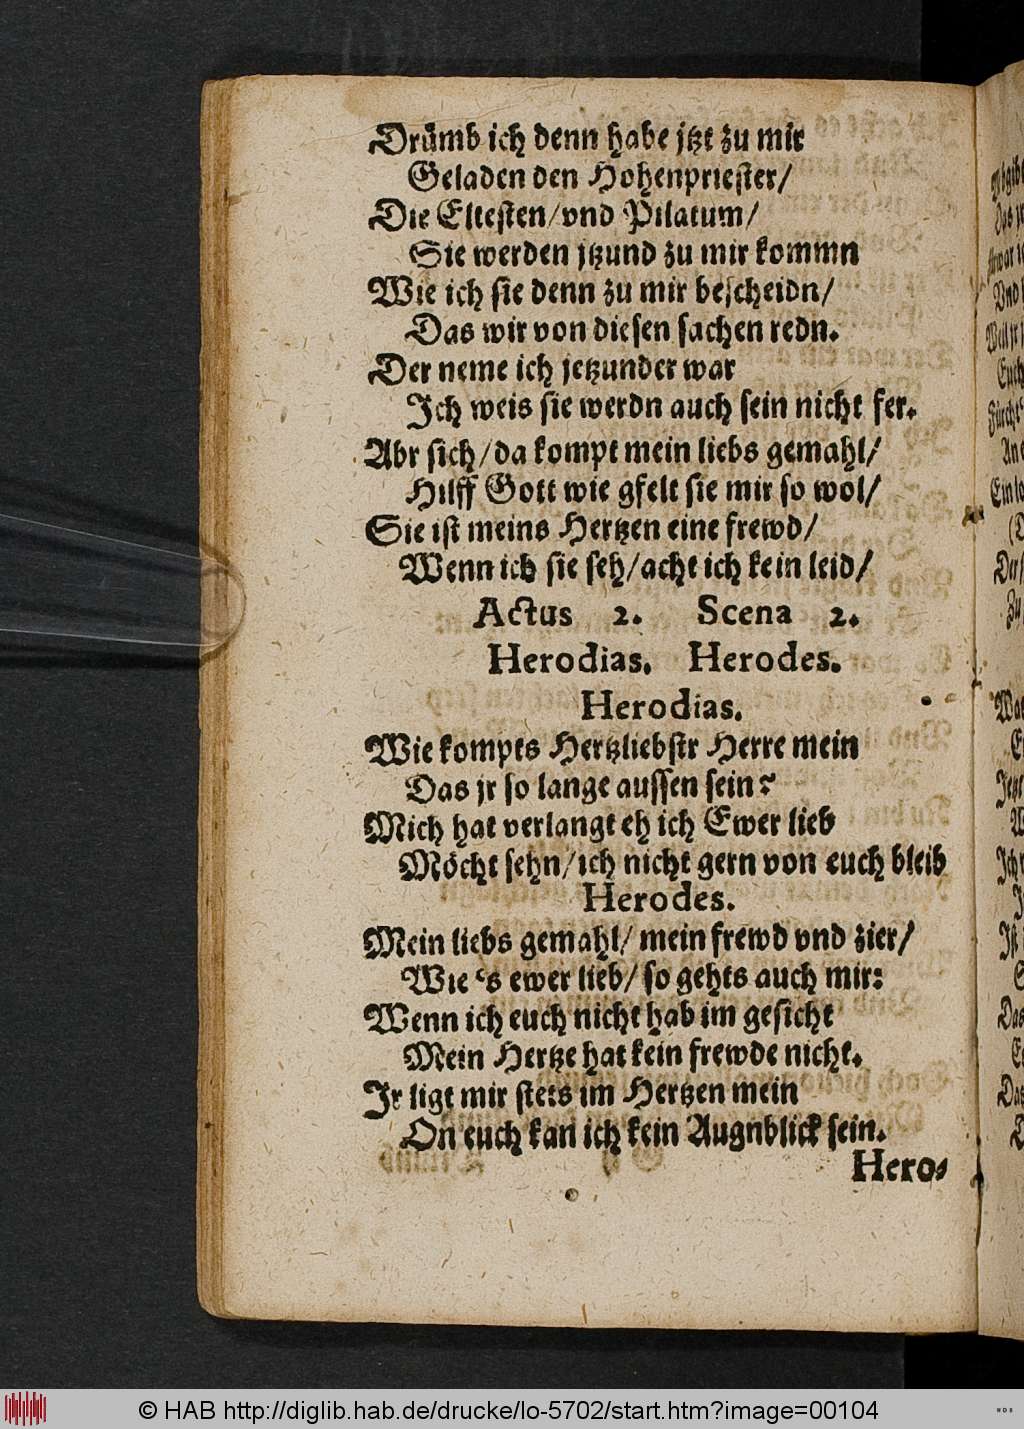 Drümb ich denn habe jtzt zu mir
Geladen den Hohenpriester/
Die Eltesten/vnd Pilatum/
Sie werden jtzund zu mir kommn
Wie ich sie denn zu mir bescheidn/
Das wir von diesen sachen redn.
Der neme ich jetzunder war
Ich weis sie werdn auch sein nicht fer.
Abr sich/da kompt mein liebs gemahl/
Hilff Gott wie gfelt sie mir so wol/
Sie ist meins Hertzen eine frewd/
Wenn ich sie seh/acht ich kein leid/
Actus 2. Scena 2.
Herodias. Herodes.
Herodias.
Wie kompts Hertzliebstr Herre mein
Das jr so lange aussen sein?
Mich hat verlangt eh ich Ewer lieb
Möcht sehn/ich nicht gern von euch bleib
Herodes.
Mein liebs gemahl/ mein frewd vnd zier/
Wie 's ewer lieb/ so gehts auch mir:
Wenn ich euch nicht hab im gesicht
Mein Hertze hat kein frewde nicht.
Ir ligt mir stets im Hertzen mein
On euch kan ich kein Augnblick sein.
Hero-
© HAB http://diglib.hab.de/drucke/lo-5702/start.htm?image=00104